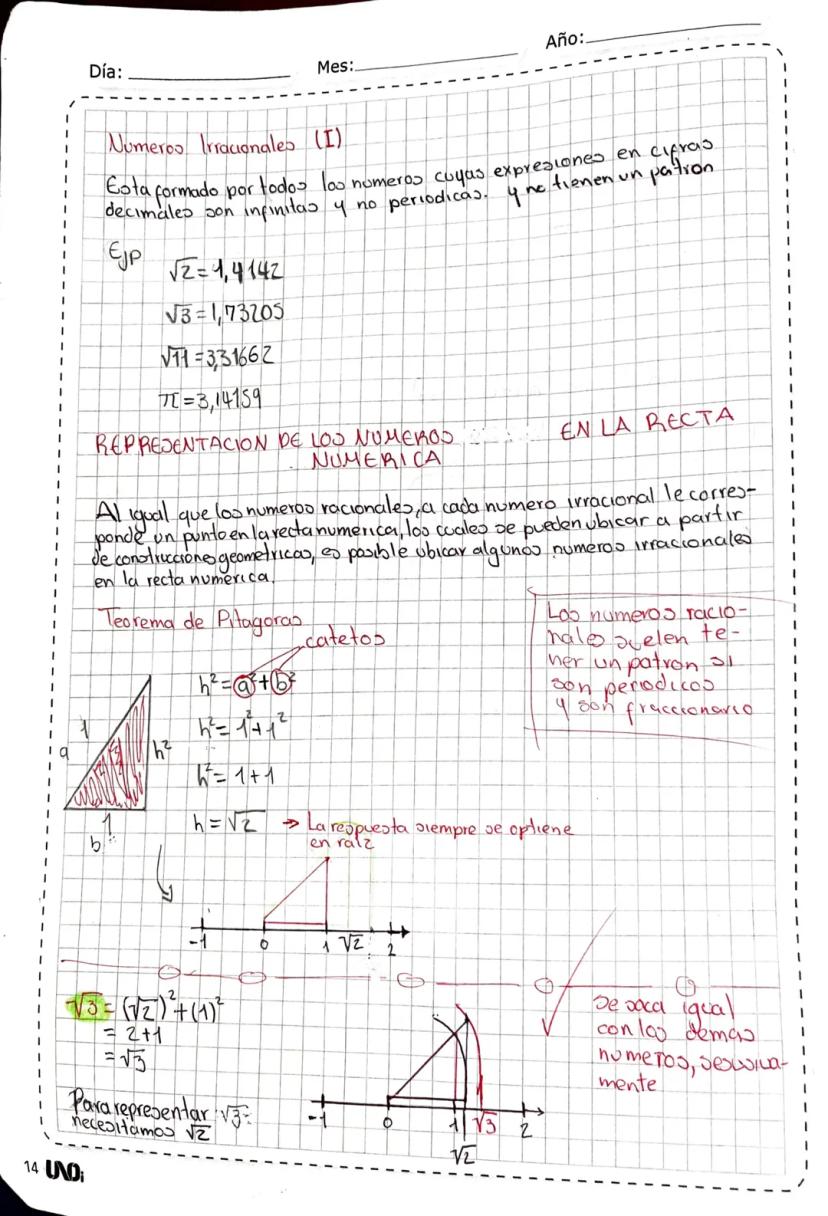 Día: Mes: Año:
Numeros Irracionales (I)
Esta formado por todos los numeros cuyas expresiones en cifras
decimales son infinitas y no periodicas. y no tienen un patron
Ejp
√2 = 1,4142
√3 = 1,73205
√11 = 3,31662
π = 3,14159
REPRESENTACION DE LOS NUMEROS EN LA RECTA
NUMERICA
Al igual que los numeros racionales, a cada numero irracional le corres-
ponde un punto en la recta numerica, los cuales se pueden ubicar a partir
de construcciones geometricas, es posible ubicar algunos numeros irracionales
en la recta numerica.
Teorema de Pitagoras
catetos
h² = a² + b²
h² = 1² + 1²
h² = 1 + 1
h = √2 → La respuesta siempre se optiene
en raiz
1
a
h²
1
b
Los numeros racio-
nales suelen te-
ner un patron si
son periodicos
y son fraccionario
-1 0 1 √2 2
√3 = (√2)² + (1)²
= 2+1
= √3
Para representar √3:
necesitamos √2
-1 0 1 √3 2
√2
Se saca igual
con los demas
numeros, sesusiva-
mente
14 UNOi